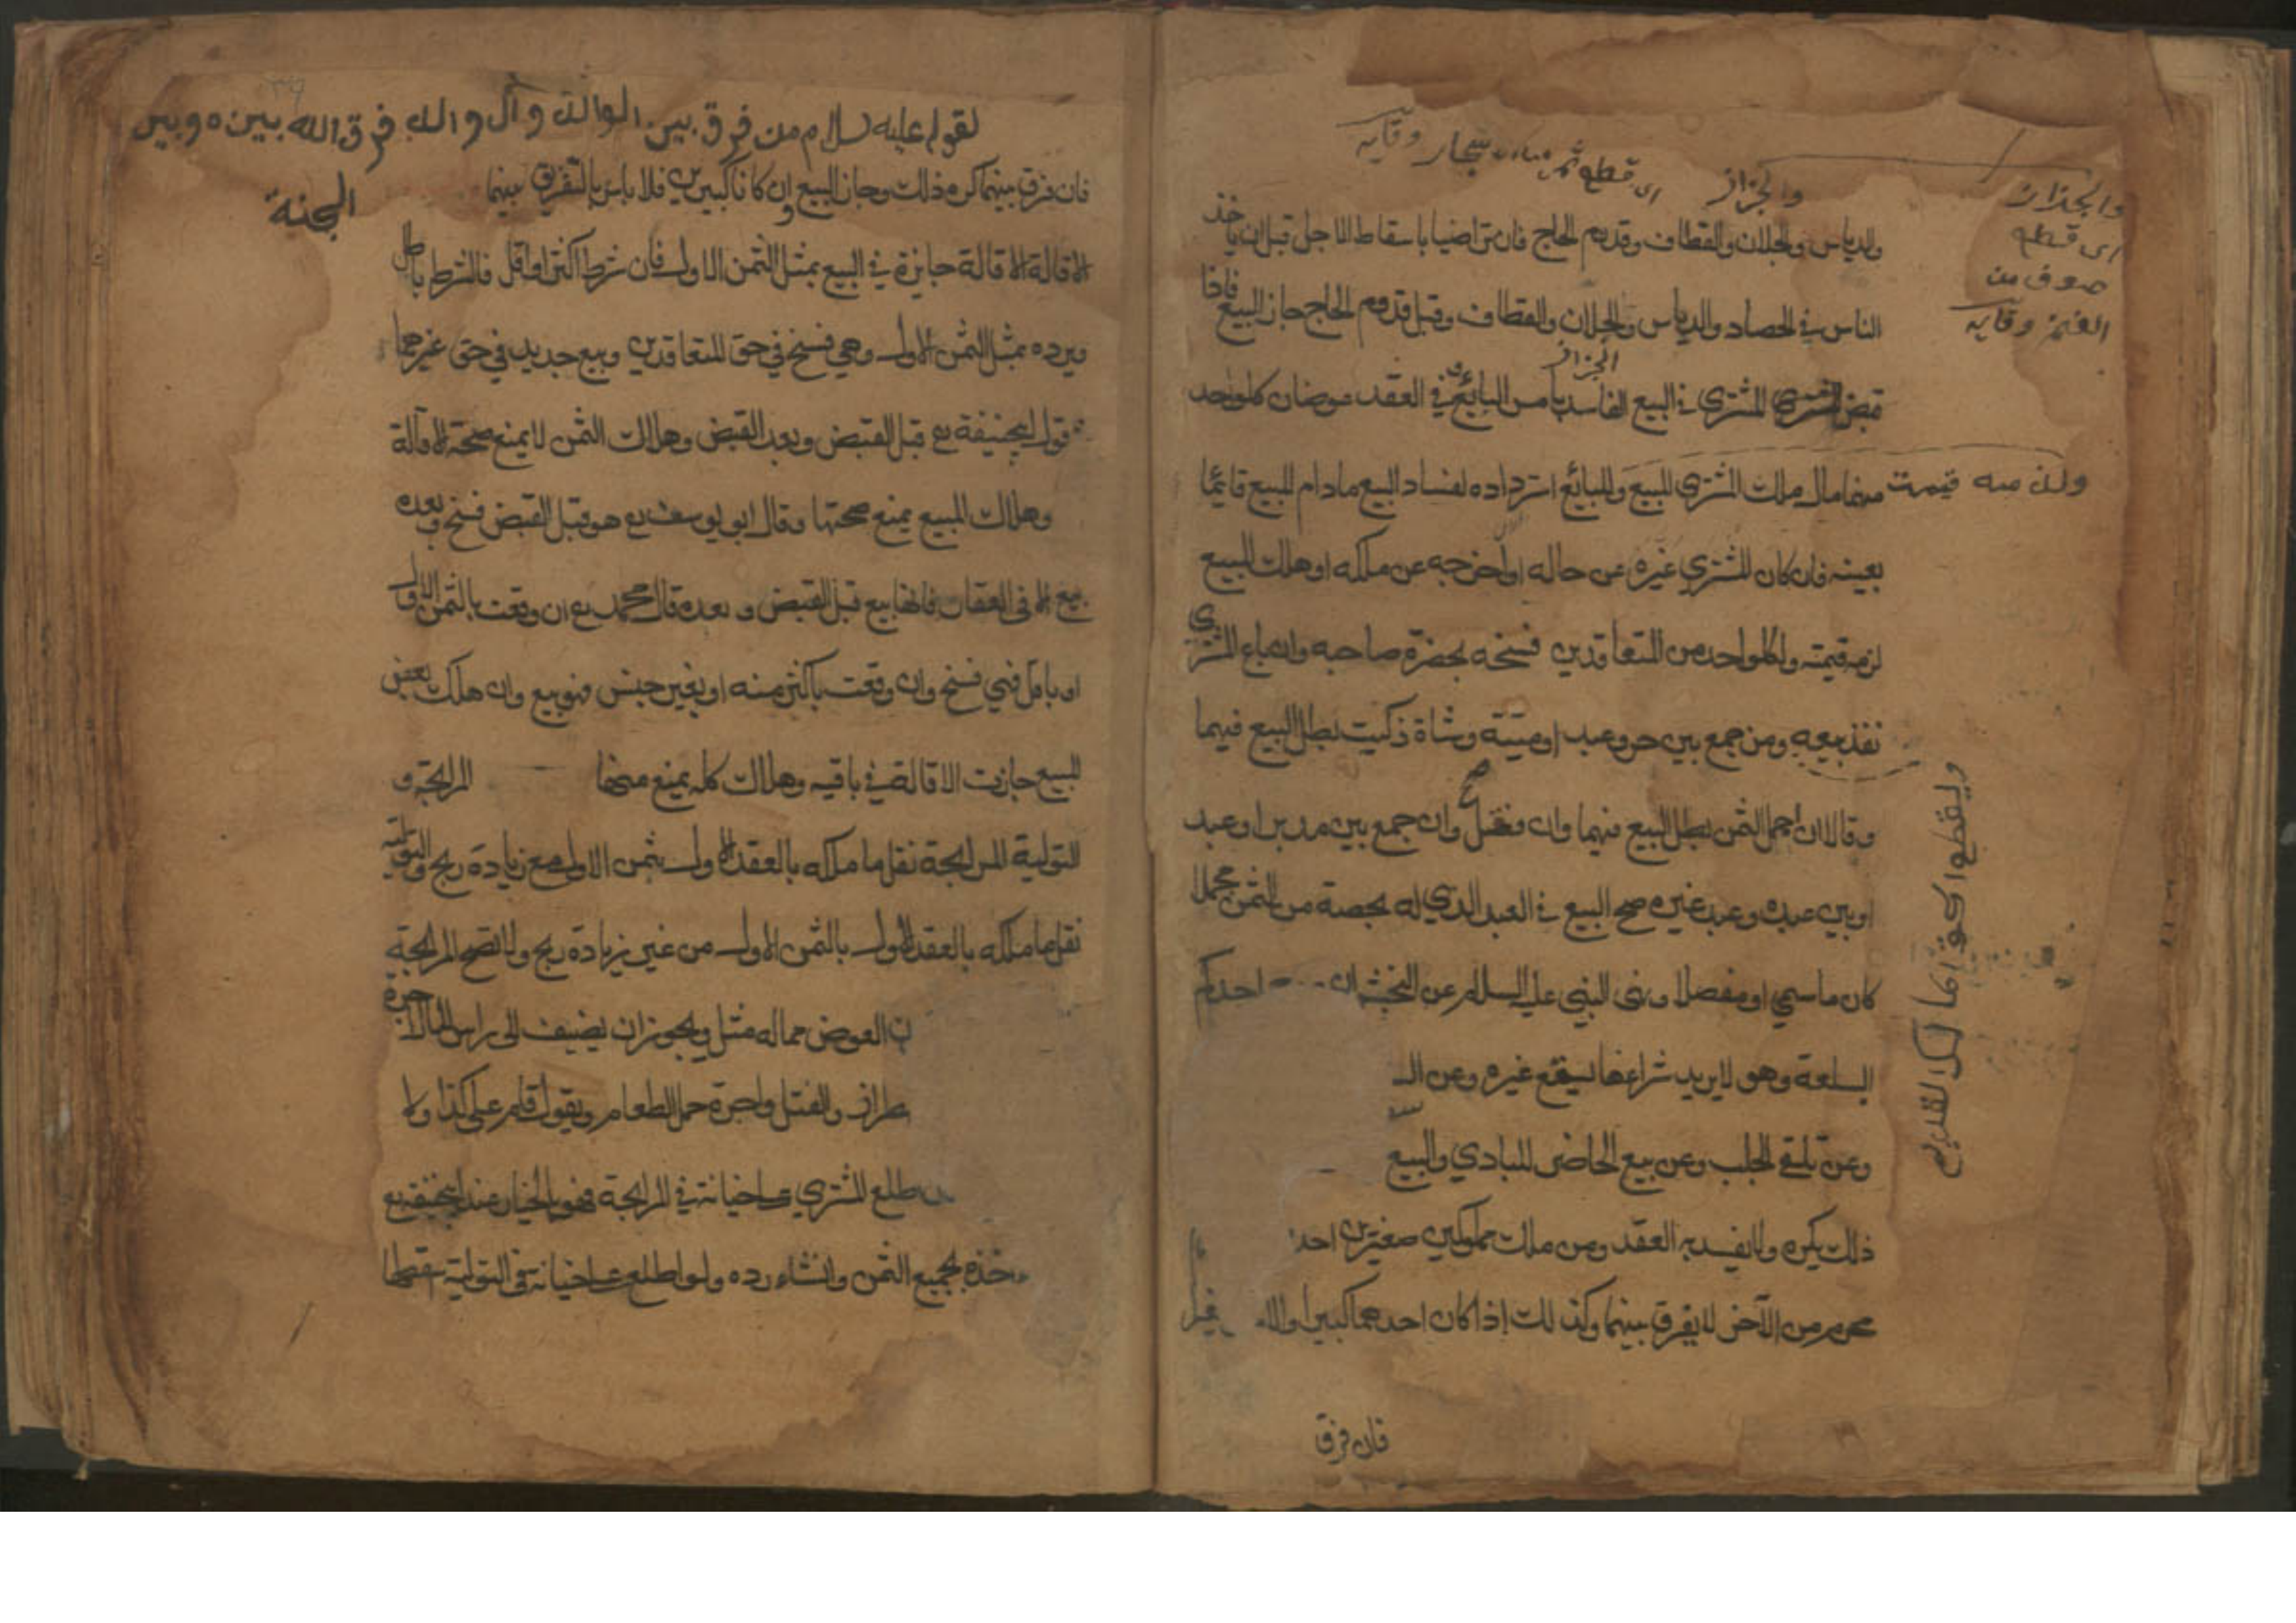 والجزاز
اى قطع ثمر
وقايه
والجذاذ
اى قطع
صوف من
الغنم وقايه
والدياس والجذاذ والقطاف وقدوم الحاج فان تراضيا باسقاط الاجل قبل ان ياخذ
الناس في الحصاد والدياس والجذاذ والقطاف وقبل قدوم الحاج جاز البيع فاذا
الجزاز
قبض المشتري المبيع في البيع الفاسد بامر البائع وفي العقد عوضان كل واحد
منهما مال ملك المشتري المبيع وللبائع استرداده لفساد البيع مادام المبيع قائما
ولزمه قيمت
بعينه فان كان المشتري غيره عن حاله او اخرجه عن ملكه او هلك المبيع
لزمه قيمته ولكل واحد من المتعاقدين فسخه بحضرة صاحبه وان باع المشتري
نفذ بيعه ومن جمع بين حر وعبد او ميتة وشاة ذكيت بطل البيع فيهما
وقالا ان اجمل الثمن بطل البيع فيهما وان فصل صح وان جمع بين مدبر او عبد
او بين عبده وعبد غيره صح البيع في العبد الذي له بحصة من الثمن مجملا
كان ما سمي او مفصلا ونهى النبي عليه السلام عن النجش ان احدكم
السلعة وهو لا يريد شراءها ليقع غيره وعن الـ
وعن تلقي الجلب وعن بيع الحاضر للبادي والبيع
ذلك يكره ولا يفسد به العقد ومن ملك مملوكين صغيرين احد
محرم من الآخر لا يفرق بينهما وكذلك إذا كان احدهما كبيرا والا
فان فرق
لقوله عليه سلام من فرق بين الوالد و الولد فرق الله بينه وبين
الجنة
فان فرق بينهما كره ذلك وجاز البيع وان كانا كبيرين فلا باس بالتفريق بينهما
الاقالة الاقالة جايزة في البيع بمثل الثمن الاول فان شرط اكثر او اقل فالشرط باطل
ويرده بمثل الثمن الاول وهي فسخ في حق المتعاقدين وبيع جديد في حق غيرهما
قول ابيحنيفة رع قبل القبض وبعد القبض وهلاك الثمن لا يمنع صحة الاقالة
وهلاك المبيع يمنع صحتها وقال ابو يوسف رع هو قبل القبض فسخ وبعده
بيع الا في العقار فانها بيع قبل القبض و بعده قال محمد رع ان وقعت بالثمن الاول
او باقل فهي فسخ وان وقعت باكثر منه او بغير جنس فهو بيع وان هلك بعض
المبيع جازت الاقالة في باقيه وهلاك كله يمنع منها المرابحة و
التولية المرابحة نقل ما ملكه بالعقد الاول بثمن الاول مع زيادة ربح والتولية
نقل ما ملكه بالعقد الاول بالثمن الاول من غير زيادة ربح ولا تصح المرابحة
ن العوض مما له مثل ويجوز ان يضيف الى راس المال اجرة
طراز والفتل واجرة حمل الطعام ويقول قام على كذا ولا
طلع المشتري على خيانة في المرابحة فهو بالخيار عند ابيحنيفة رع
اخذه بجميع الثمن وان شاء رده ولو اطلع على خيانة في التولية سقطها